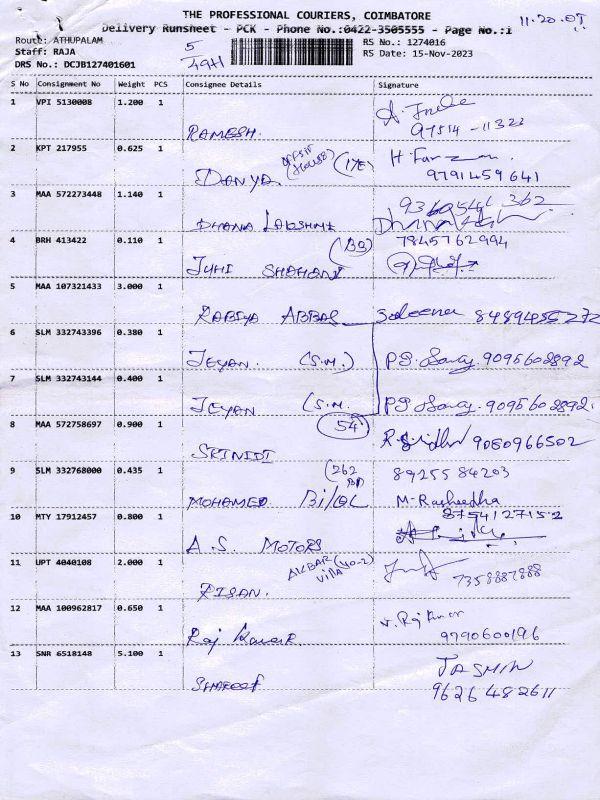 THE PROFESSIONAL COURIERS, COIMBATORE
11.20.
Delivery Runsheet - PCK - Phone No.:0422-3505555 - Page No.:1
Route: ATHUPALAM 5 RS No.: 1274016
Staff: RAJA RS Date: 15-Nov-2023
DRS No.: DCJB127401601
S No Consignment No Weight PCS Consignee Details Signature
1 VPI 5130008 1.200 1
RAMESH. 97514-11322
2 KPT 217955 0.625 1 (17E)
DANYA 9791459641
3 MAA 572273448 1.140 1
DHANA LAKSHMI
4 BRH 413422 0.110 1 (B9) 7845762994
JUHI SHAHANI
5 MAA 107321433 3.000 1
RABIYA ABBAS Saleena 8489455272
6 SLM 332743396 0.380 1
JEYAN. (S.M.) 9095608892
7 SLM 332743144 0.400 1
JEYAN (S.M. 9095608892.
8 MAA 572758697 0.900 1 54
SRINIDI 9080966502
9 SLM 332768000 0.435 1 (262 8925584203
MOHAMED BILAL M-Rasheedha
10 MTY 17912457 0.800 1 8754127152
A.S. MOTORS
11 UPT 4040108 2.000 1 AKBAR Villa (40-2)
RISAN. 7358887888
12 MAA 100962817 0.650 1 v. Raj Kumar
Raj Kumar. 9790600196
13 SNR 6518148 5.100 1 JASMIN
SHAREEF 9626482611